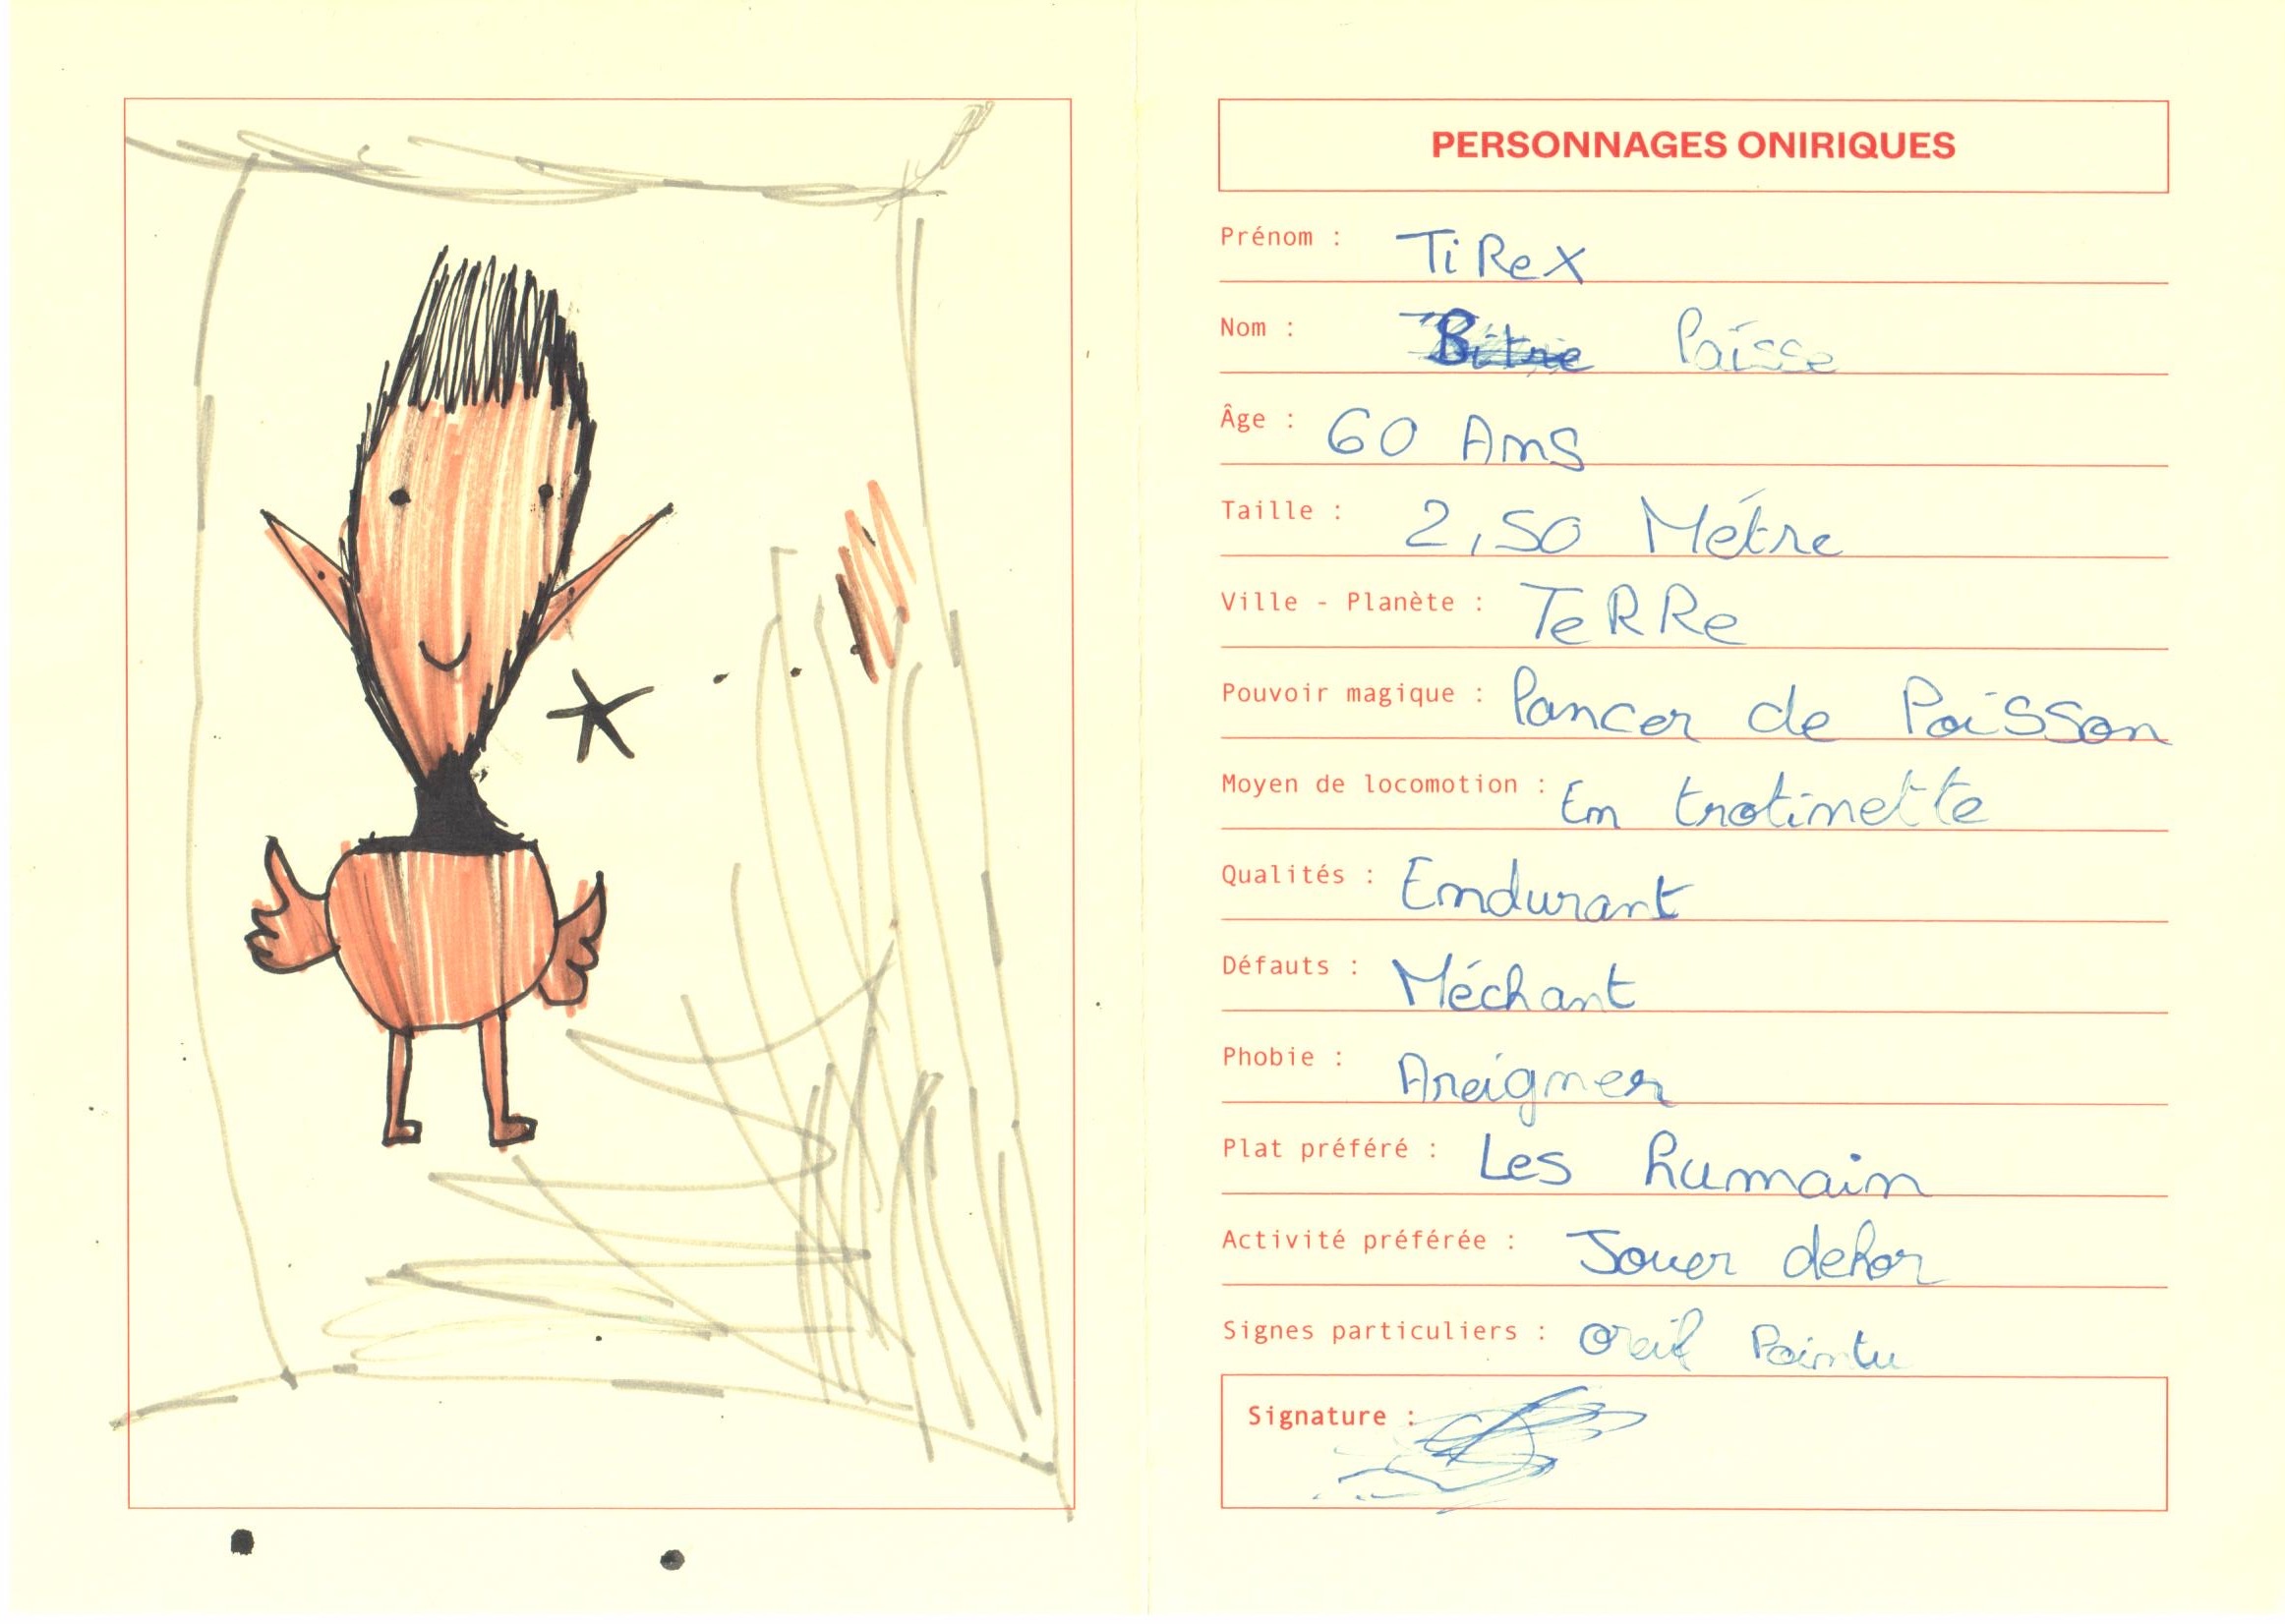 PERSONNAGES ONIRIQUES
Prénom : TiRex
Nom : Bitre Païsse
Âge : 60 Ans
Taille : 2,50 Métre
Ville - Planète : TeRRe
Pouvoir magique : Lancer de PoiSSon
Moyen de locomotion : En trotinette
Qualités : Endurant
Défauts : Méchant
Phobie : Areigner
Plat préféré : Les humain
Activité préférée : Jouer dehor
Signes particuliers : Oreil Pointu
Signature :